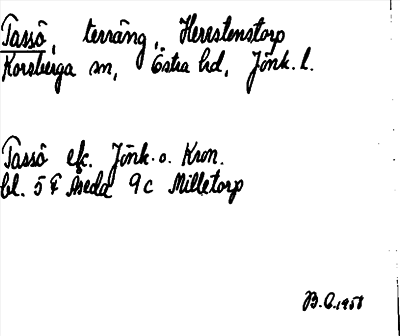 Tassö, terräng, Herrestenstorp
Korsberga sn, Östra hd, Jönk. l.
Tassö ek. Jönk. o. Kron.
bl. 5 F Åseda 9 c Milletorp
B.O. 1958